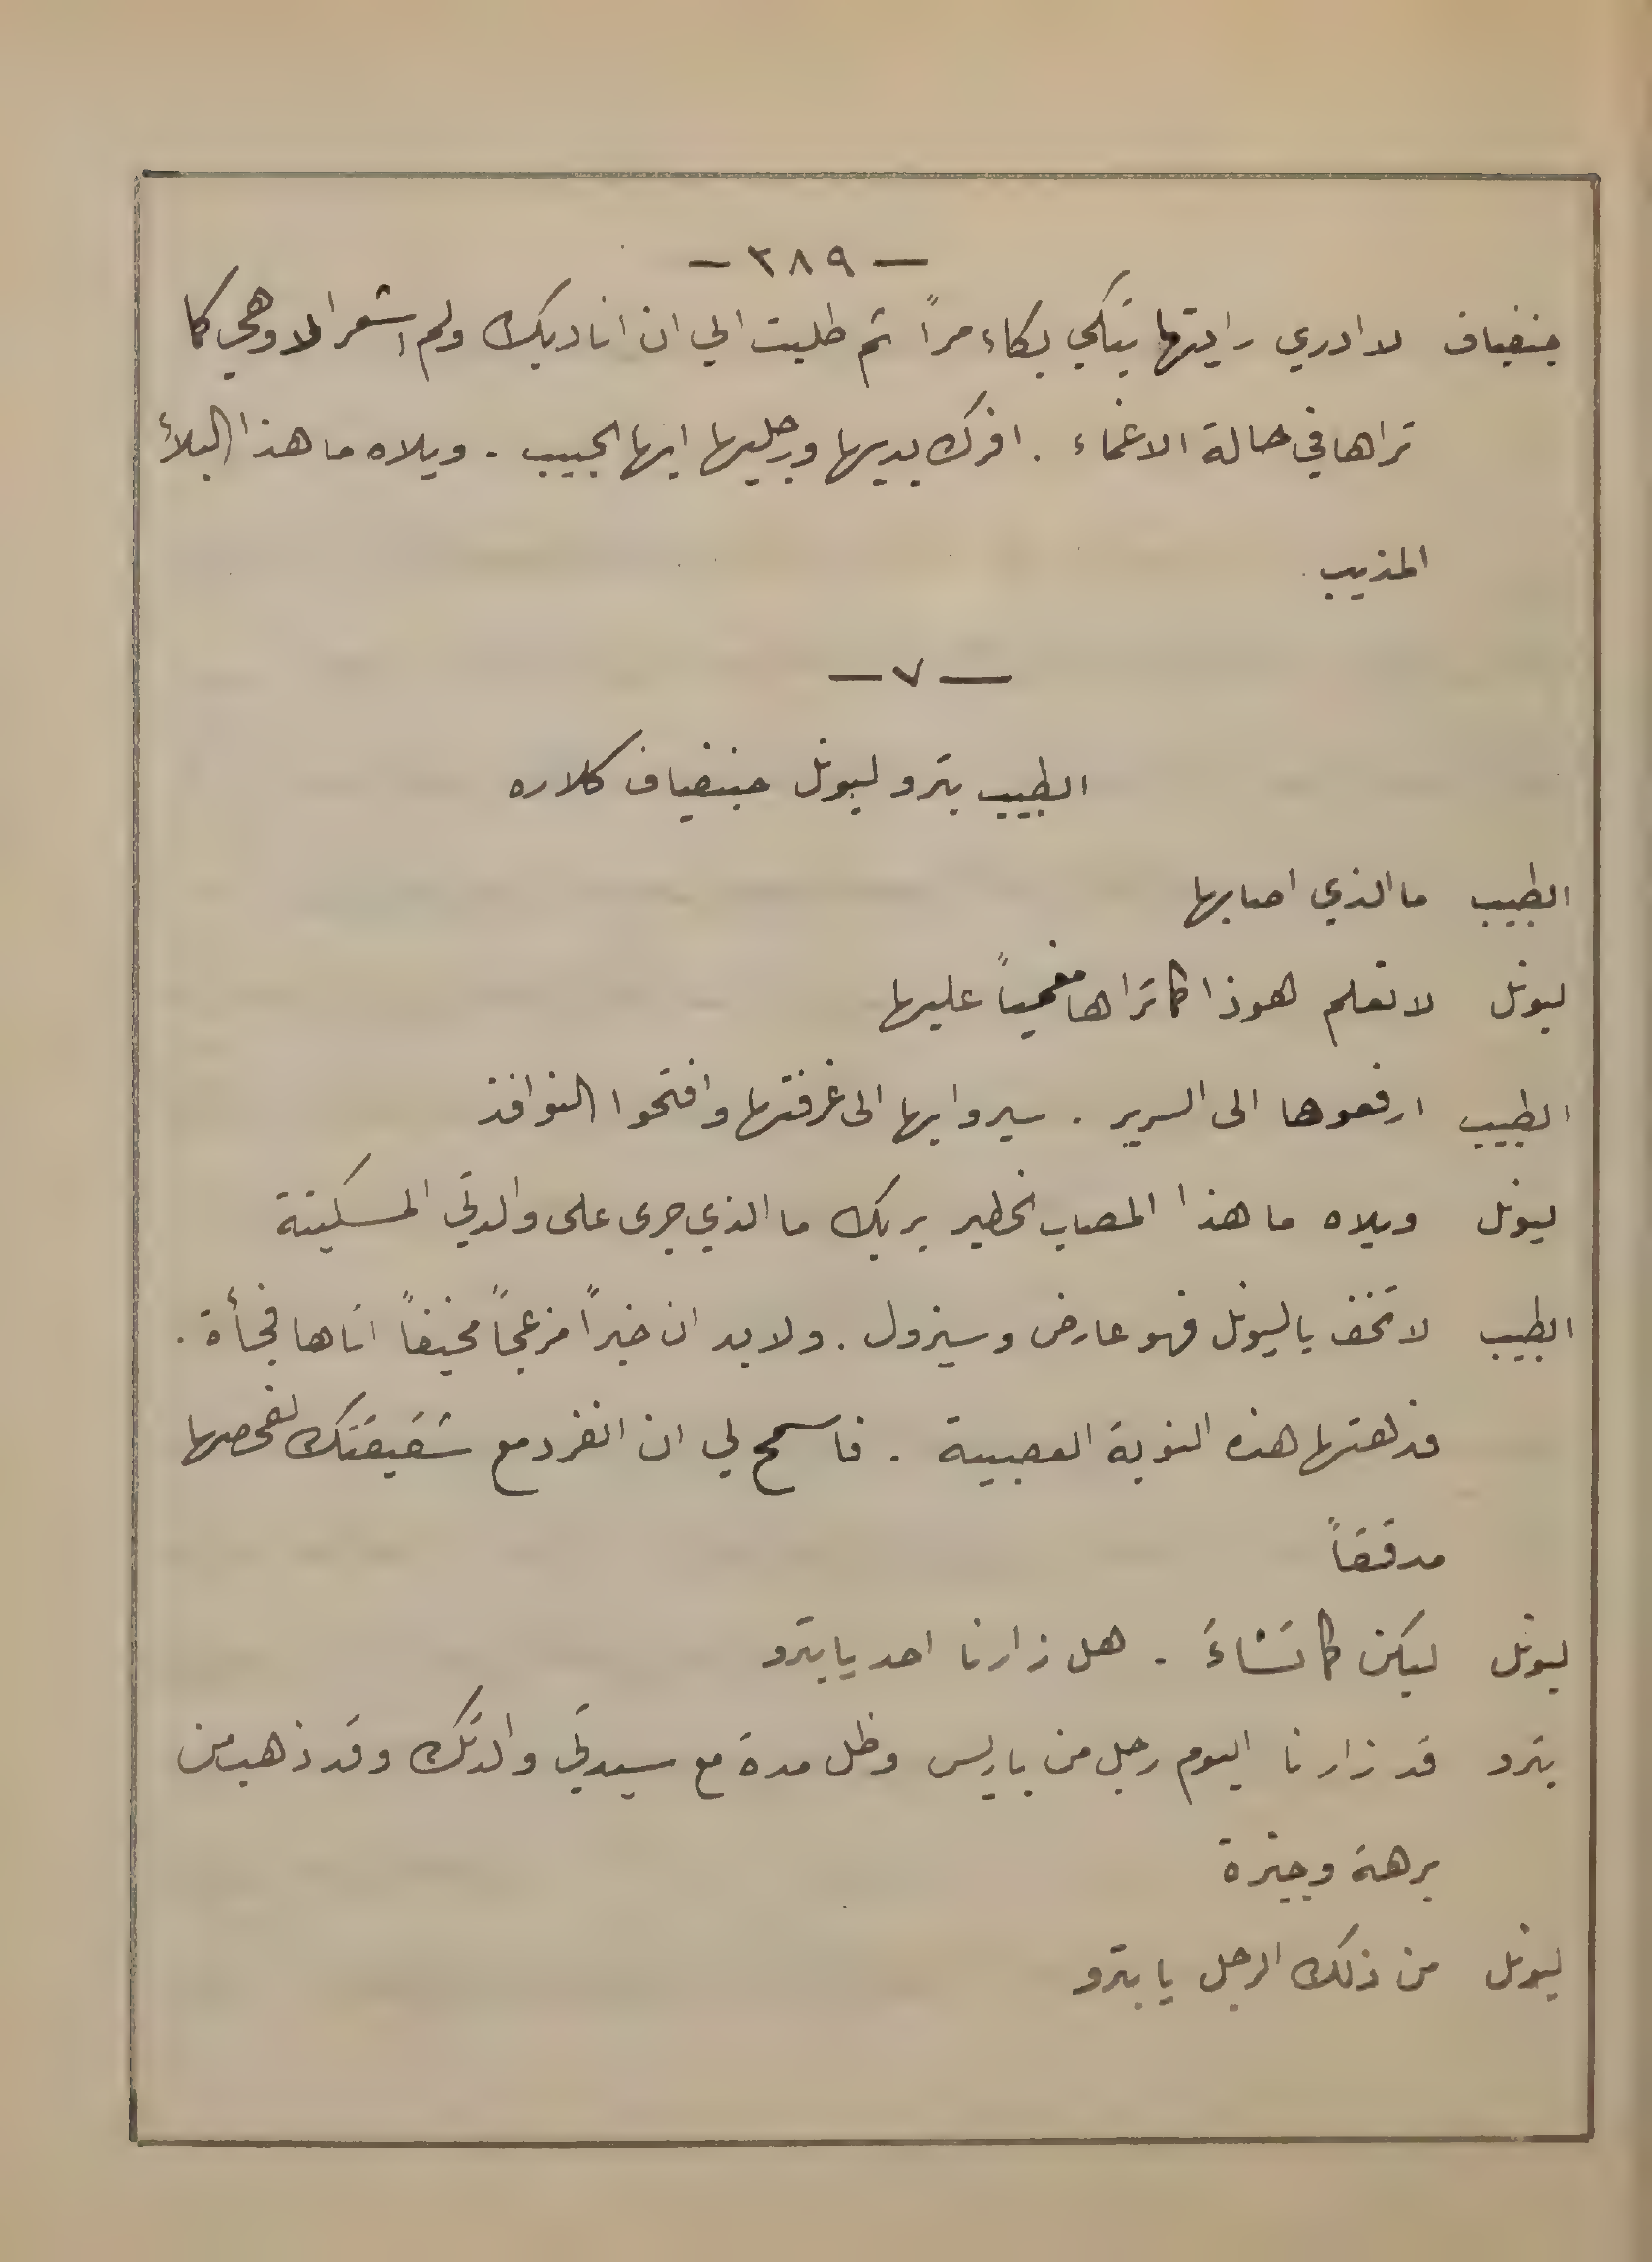 — ٣٨٩ —
جنفياف لا ادري رايتها تبكي بكاء مراً ثم طلبت الي ان اناديك ولم اشعر الا وهي كما
تراها في حالة الاغماء . افرك يديها ورجليها ايها الحبيب . ويلاه ما هذا البلاء
المذيب .
— ٧ —
الطبيب بترو ليونل جنفياف كلاره
الطبيب ما الذي اصابها
ليونل لا نعلم هوذا كما تراها مغمياً عليها
الطبيب ارفعوها الى السرير . سيروا بها الى غرفتها وافتحوا النوافذ
ليونل ويلاه ما هذا المصاب الخطير بربك ما الذي جرى على والدتي المسكينة
الطبيب لا تخف يا ليونل فهو عارض وسيزول . ولا بد ان خبراً مزعجاً مخيفاً اتاها فجأة .
فدهتها هذه النوبة العصبية . فاسمح لي ان انفرد مع شقيقتك لفحصها
مدققاً
ليونل ليكن كما تشاءَ . هل زارنا احد يا بترو
بترو قد زارنا اليوم رجل من باريس وظل مدة مع سيدتي والدتك وقد ذهب من
برهة وجيزة
ليونل من ذلك الرجل يا بترو